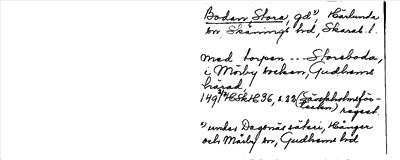 Bodan Stora, gd¹⁾, Härlunda
sn, Skånings hd, Skarab. l.
med torpen --- Storeboda,
i Mörby socken, Gudhems
härad,
149 HSH 36, s. 22 (Säröholmsför-
regest.
¹⁾ under Dagsnäs säteri, Hånger
och Mårby sn, Gudhems hd